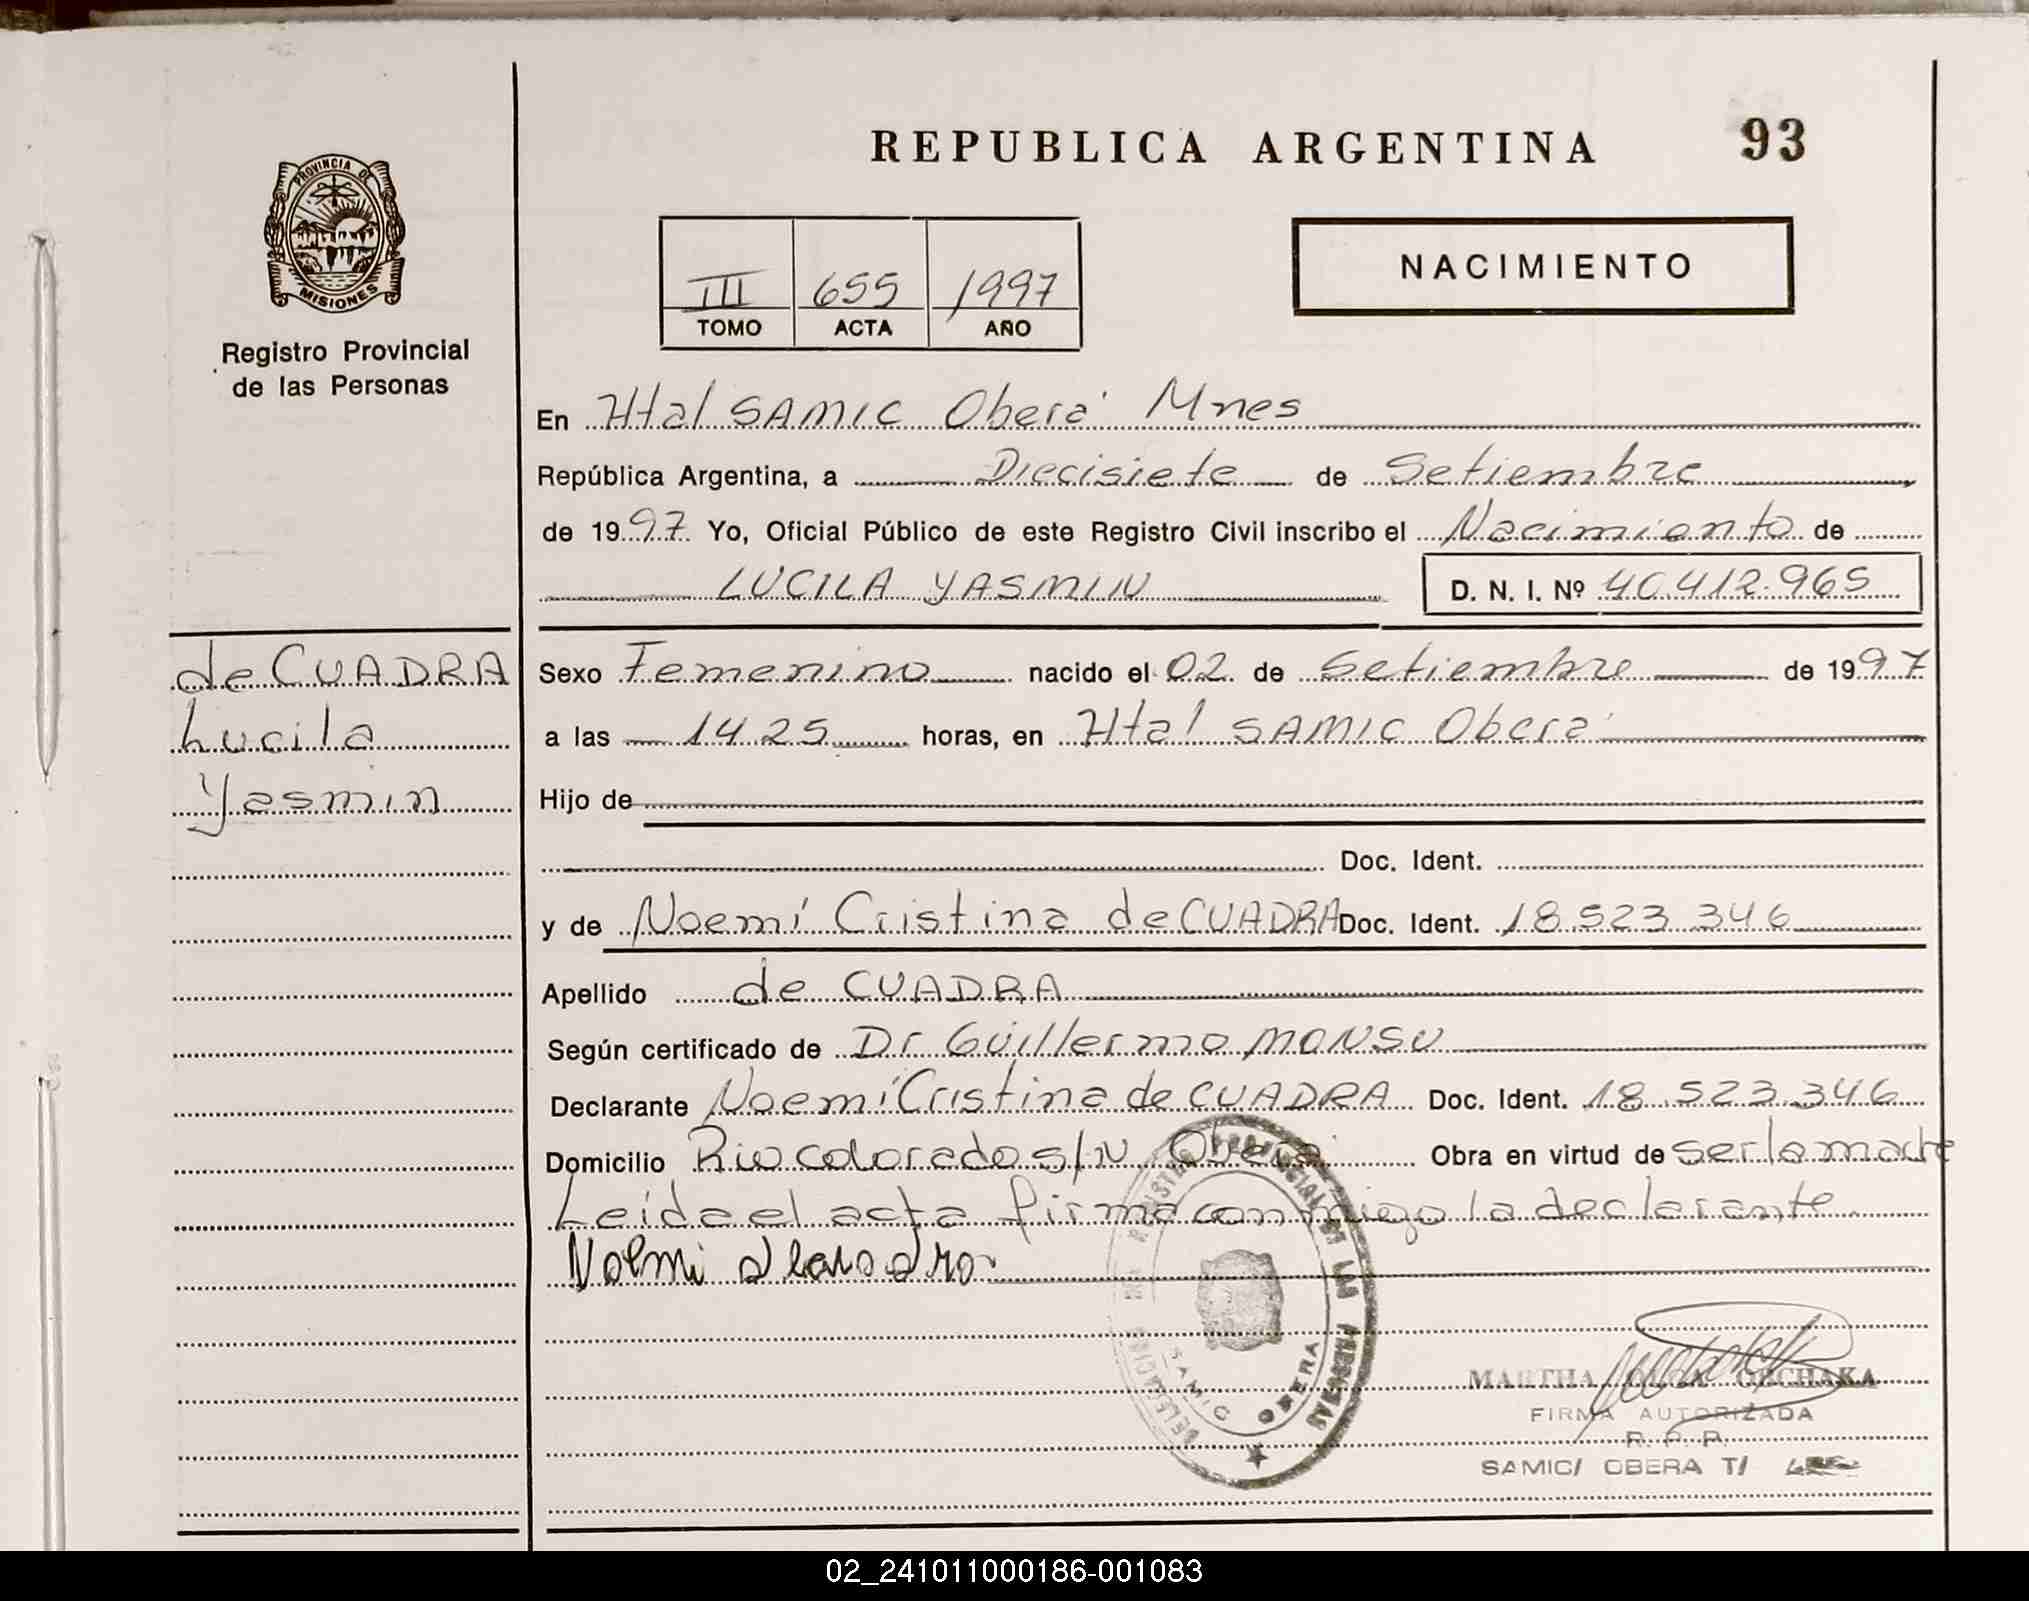 REPUBLICA ARGENTINA 93
PROVINCIA DE
MISIONES
Registro Provincial
de las Personas
III 655 1997
TOMO ACTA AÑO
NACIMIENTO
En Htal SAMIC Oberá Mnes
República Argentina, a Diecisiete de Setiembre
de 1997 Yo, Oficial Público de este Registro Civil inscribo el Nacimiento de
LUCILA YASMIN D. N. I. Nº 40.412.965
de CUADRA
Lucila
Yasmin
Sexo Femenino nacido el 02 de Setiembre de 1997
a las 14 25 horas, en Htal SAMIC Oberá
Hijo de
Doc. Ident.
y de Noemí Cristina de CUADRA Doc. Ident. 18.523.346
Apellido de CUADRA
Según certificado de Dr Guillermo MONSU
Declarante Noemí Cristina de CUADRA Doc. Ident. 18.523.346
Domicilio Rio colorado s/N Oberá Obra en virtud de ser la madre
Leida el acta firma con migo la declarante
Noemi
SAMIC OBERA
MARTHA
FIRMA AUTORIZADA
R. P. P.
SAMIC/ OBERA T/
02_241011000186-001083